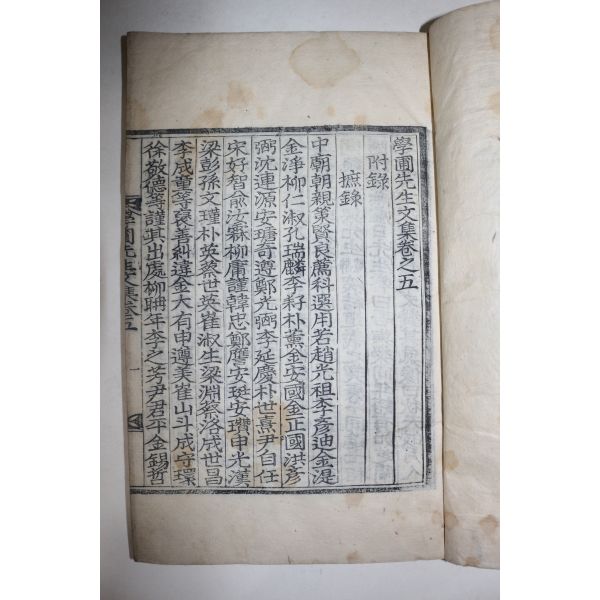 學圃先生文集卷之五
附錄
摭錄
中朝朝親策賢良薦科選用若趙光祖李彥迪金湜
金淨柳仁淑孔瑞麟李耔朴薰金安國金正國洪彥
弼沈連源安瑭奇遵鄭光弼李延慶朴世熹尹自任
宋好智俞汝霖柳庸謹韓忠鄭譍安珽安瓚申光漢
梁彭孫文瑾朴英蔡世英崔淑生梁淵蔡洛成世昌
李成童等褒善糾違金大有申遵美崔山斗成守環
徐敬德等謹其出處柳聃年李之芳尹君平金錫哲
學圃先生文集卷五
一